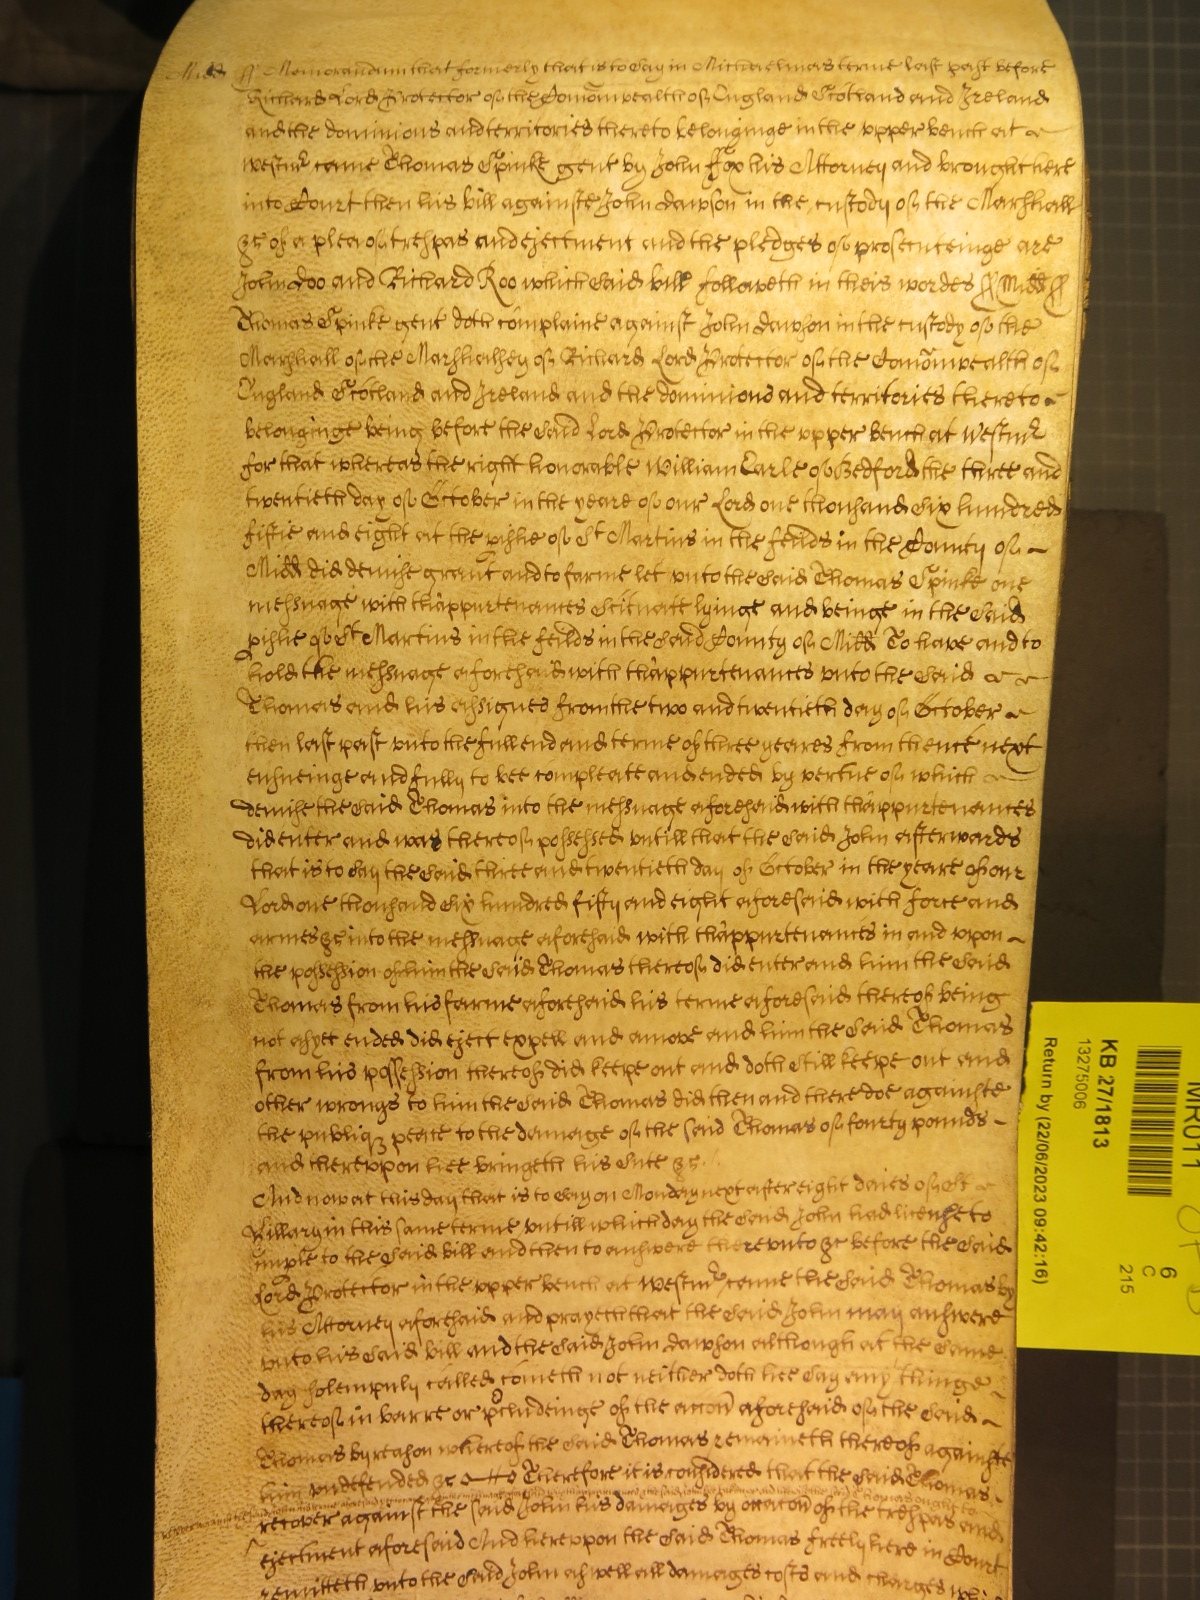 Midd ss Memorandum that formerly that is to say in Michaelmas terme last past before
Richard Lord Protector of the Comonwealth of England Scotland and Ireland
and the dominions and territories thereto belonginge in the upper bench at
Westmr came Thomas Spinke gent by John Fox his Attorney and brought here
into Court then his bill againste John Dawson in the custody of the Marshall
&c of a plea of trespas and ejectment and the pledges of prosecuteinge are
John Doo and Richard Roo which said bill followeth in theis wordes ss Midd ss
Thomas Spinke gent doth complaine against John Dawson in the custody of the
Marshall of the Marshalsey of Richard Lord Protector of the Comonwealth of
England Scotland and Ireland and the dominions and territories thereto
belonginge being before the said Lord Protector in the upper bench at Westmr
for that whereas the right honorable William Earle of Bedford the three and
twentieth day of October in the yeare of our Lord one thousand six hundred
fiftie and eight at the pishe of St Martins in the feilds in the County of
Midd did demise grant and to farme let unto the said Thomas Spinke one
messuage with thappurtenances scituate lyinge and beinge in the said
pishe of St Martins in the feilds in the said County of Midd To have and to
hold the messuage aforesaid with thappurtenances unto the said
Thomas and his assignes from the two and twentieth day of October
then last past unto the full end and terme of three yeares from thence next
ensueinge and fully to bee compleate and ended by vertue of which
demise the said Thomas into the messuage aforesaid with thappurtenances
did enter and was thereof possessed untill that the said John afterwards
that is to say the said three and twentieth day of October in the yeare of our
Lord one thousand six hundred fifty and eight aforesaid with force and
armes &c into the messuage aforesaid with thappurtenances in and upon
the possession of him the said Thomas thereof did enter and him the said
Thomas from his farme aforesaid his terme aforesaid thereof being
not as yet ended did eject expell and amove and him the said Thomas
from his possession thereof did keepe out and doth still keepe out and
other wrongs to him the said Thomas did then and there doe againste
the publiq peace to the damage of the said Thomas of fourty pounds
and thereupon hee bringeth his sute &c
And now at this day that is to say on Monday next after eight daies of St
Hillary in this same terme untill which day the said John had license to
imple to the said bill and then to answere thereunto &c before the said
Lord Protector in the upper bench at Westmr came the said Thomas by
his Attorney aforesaid and prayeth that the said John may answere
unto his said bill and the said John Dawson although at the same
day solempnly called cometh not neither doth hee say any thinge
thereof in barre or pcludeinge of the accon aforesaid of the said
Thomas by reason whereof the said Thomas remaineth thereof againste
him undefended &c Therefore it is considered that the said Thomas
recover against the said John his damages by occacon of the trespas and
ejectment aforesaid And hereupon the said Thomas freely here in Court
remitteth unto the said John as well all damages costs and charges
KB 27/1813
13275006
Return by (22/06/2023 09:42:16)
6
C
215